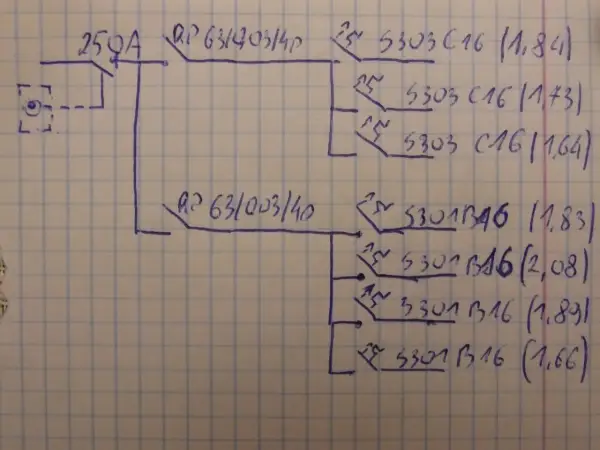 250A
R.P 63/003/40
S303 C16 (1,84)
S303 C16 (1,73)
S303 C16 (1,64)
R.P 63/003/40
S301 B16 (1,83)
S301 B16 (2,08)
S301 B16 (1,89)
S301 B16 (1,66)